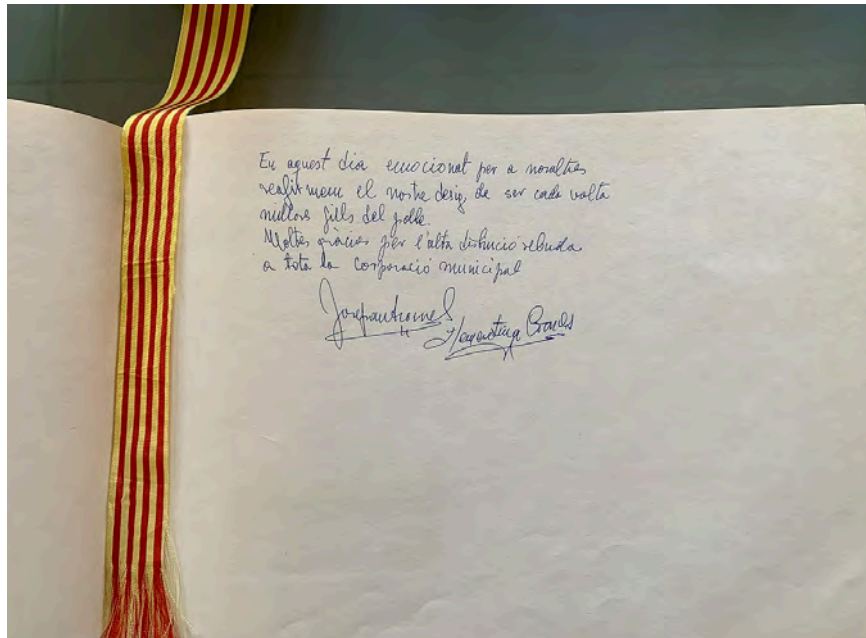 En aquest dia emocionat per a nosaltres
reafirmem el nostre desig, de ser cada volta
millors fills del poble.
Moltes gràcies per l'alta distinció rebuda
a tota la corporació municipal